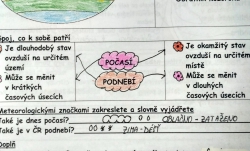 Spoj, co k sobě patří
Je dlouhodobý stav
ovzduší na určitém
území
Může se měnit
v krátkých
časových úsecích
POČASÍ
PODNEBÍ
Je okamžitý stav
ovzduší na určitém
místě
Může se měnit
v dlouhých
časových úsecích
Meteorologickými značkami zakreslete a slovně vyjádřete
Jaké je dnes počasí? OBLAČNO - ZATAŽENO
Jaké je v ČR podnebí? ZIMA - DÉŠŤ
Doplň